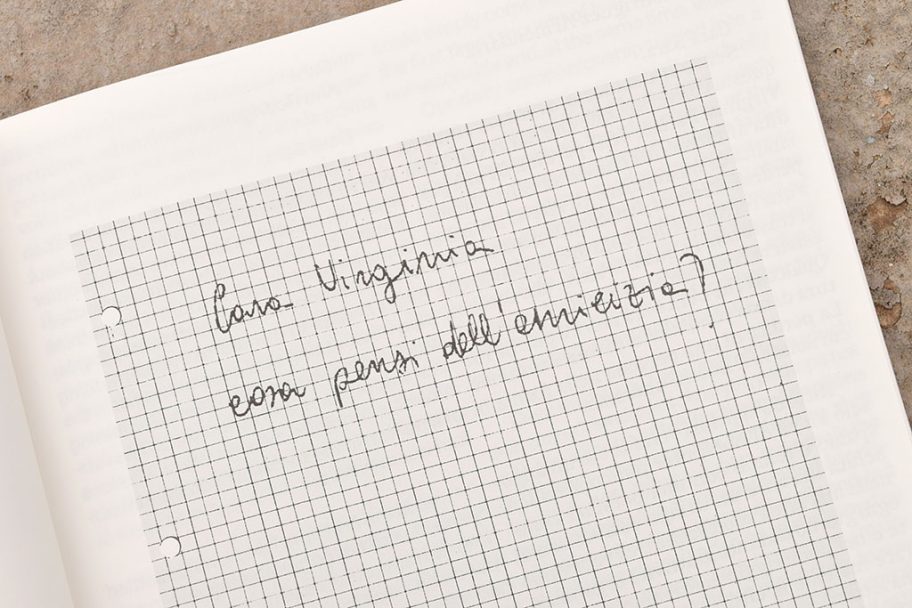 Cara Virginia
cosa pensi dell'amicizia?